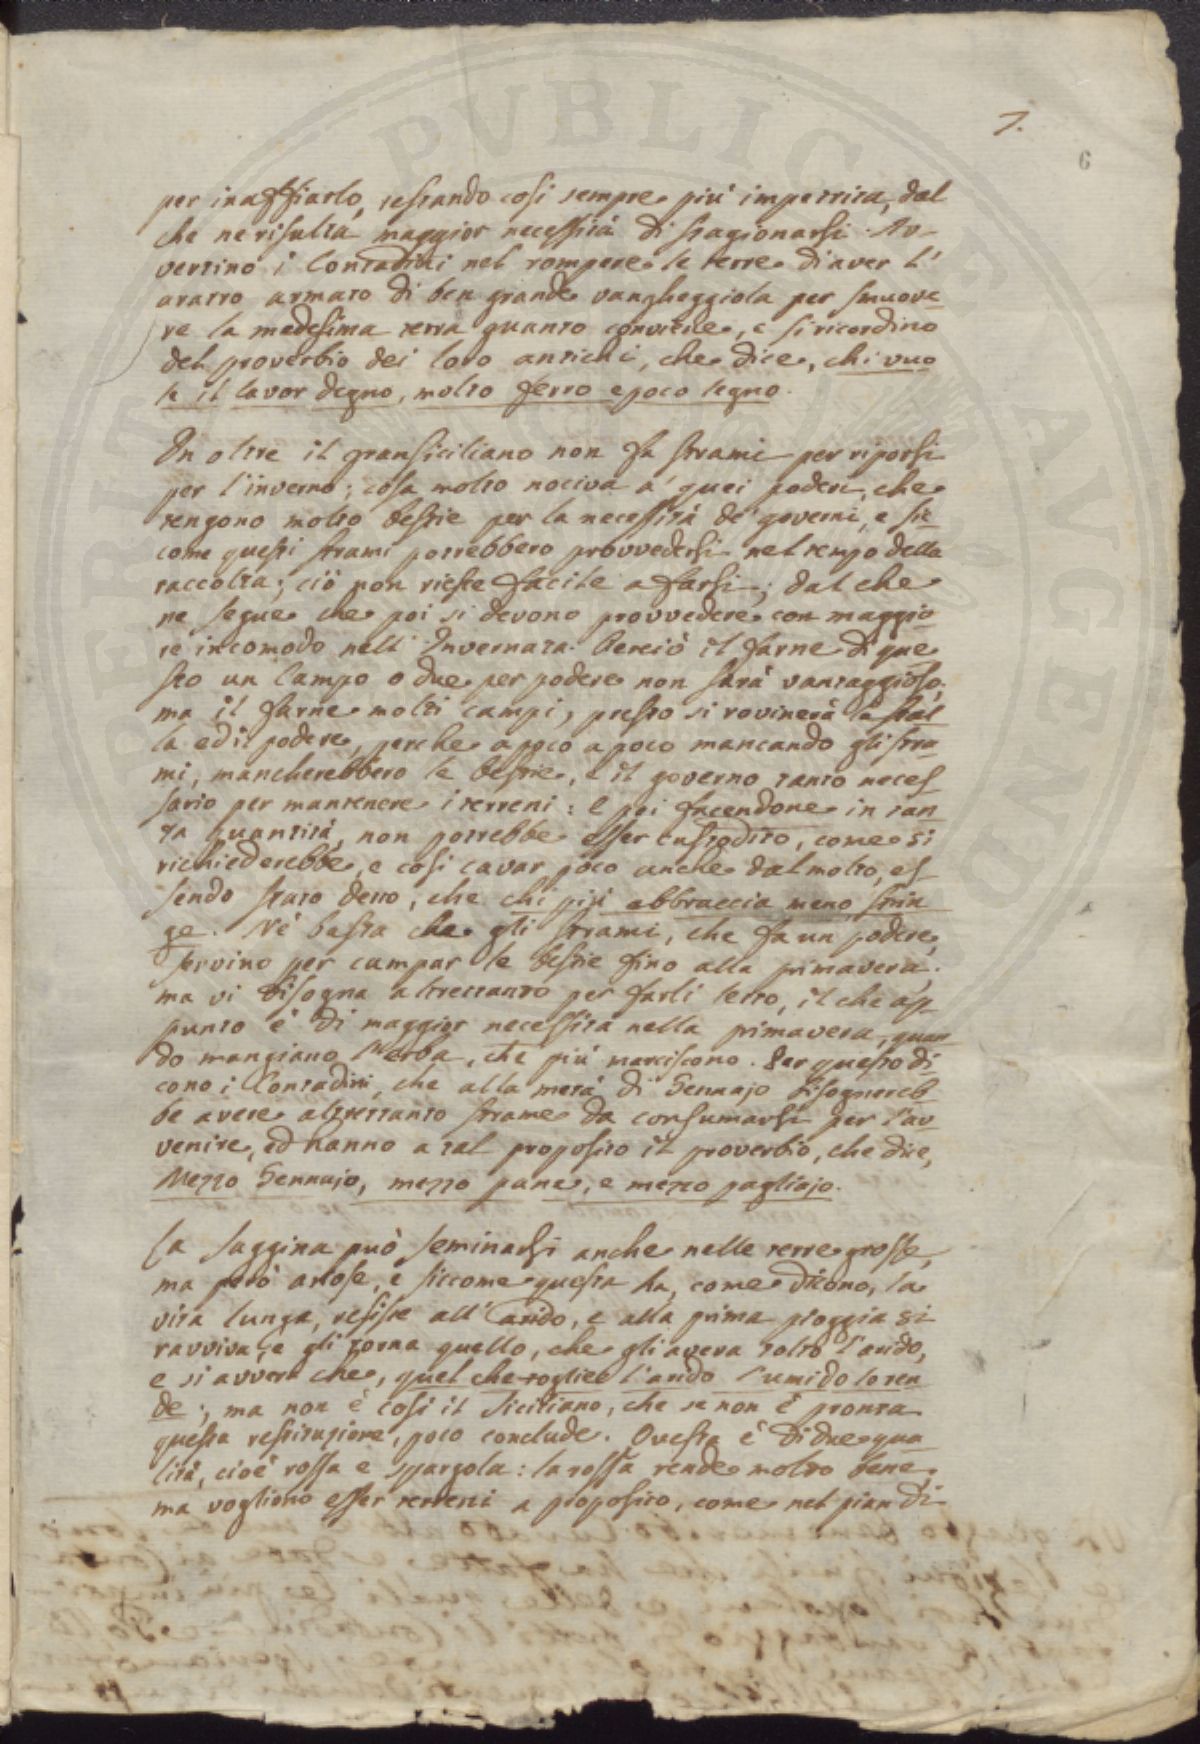 7.
6
per inaffiarlo, restando così sempre più impetrita, dal
che ne risulta maggior necessità di stagionarsi. Av-
vertino i Contadini nel rompere le terre di aver l'
aratro armato di ben grande vangheggiola per smuove-
re la medesima terra quanto conviene, e si ricordino
del proverbio dei loro antichi, che dice, chi vuo
le il lavor degno, molto ferro e poco legno.
In oltre il gran siciliano non fa strami per riporsi
per l'inverno; cosa molto nociva a' quei poderi, che
tengono molto bestie per la necessità de' governi, e sic
come questi strami potrebbero provvedersi nel tempo della
raccolta; ciò non riesce facile a farsi; dal che
ne segue che poi si devono provvedere con maggio
re incomodo nell' Invernata. Perciò il farne di que
sto un Campo o due per podere non sarà vantaggioso,
ma il farne molti campi, presto si rovinerà la stal
la ed il podere, perche a poco a poco mancando gli stra
mi, mancherebbero le bestie, e il governo tanto neces
sario per mantenere i terreni: E poi facendone in tan
ta quantità, non potrebbe esser custodito, come si
richiederebbe, e così cavar poco anche dal molto, es
sendo stato detto, che chi più abbraccia meno strin
ge. Nè basta che gli strami, che fa un podere,
servino per campar le bestie fino alla primavera,
ma vi bisogna altrettanto per farli letto, il che ap
punto è di maggior necessità nella primavera, quan
do mangiano l'erba, che più marciscono. Per questo di
cono i Contadini, che alla metà di Gennajo bisognereb
be avere altrettanto strame da consumarsi per l'av
venire, ed hanno a tal proposito il proverbio, che dice,
Mezzo Gennajo, mezzo pane, e mezzo pagliajo.
La Saggina può seminarsi anche nelle terre grosse,
ma però ariose, e siccome questa ha, come dicono, la
vita lunga, resiste all' arido, e alla prima pioggia si
ravviva, e gli torna quello, che gli aveva tolto l'arido,
e si avvera che, quel che toglie l'arido l'umido lo ren
de; ma non è così il Siciliano, che se non è pronta
questa restituzione, poco conclude. Questa è di due qua
lità, cioè rossa e spargola: la rossa rende molto bene,
ma vogliono esser terreni a proposito, come nel pian di
PERITIA PVBLICE AVGENDA